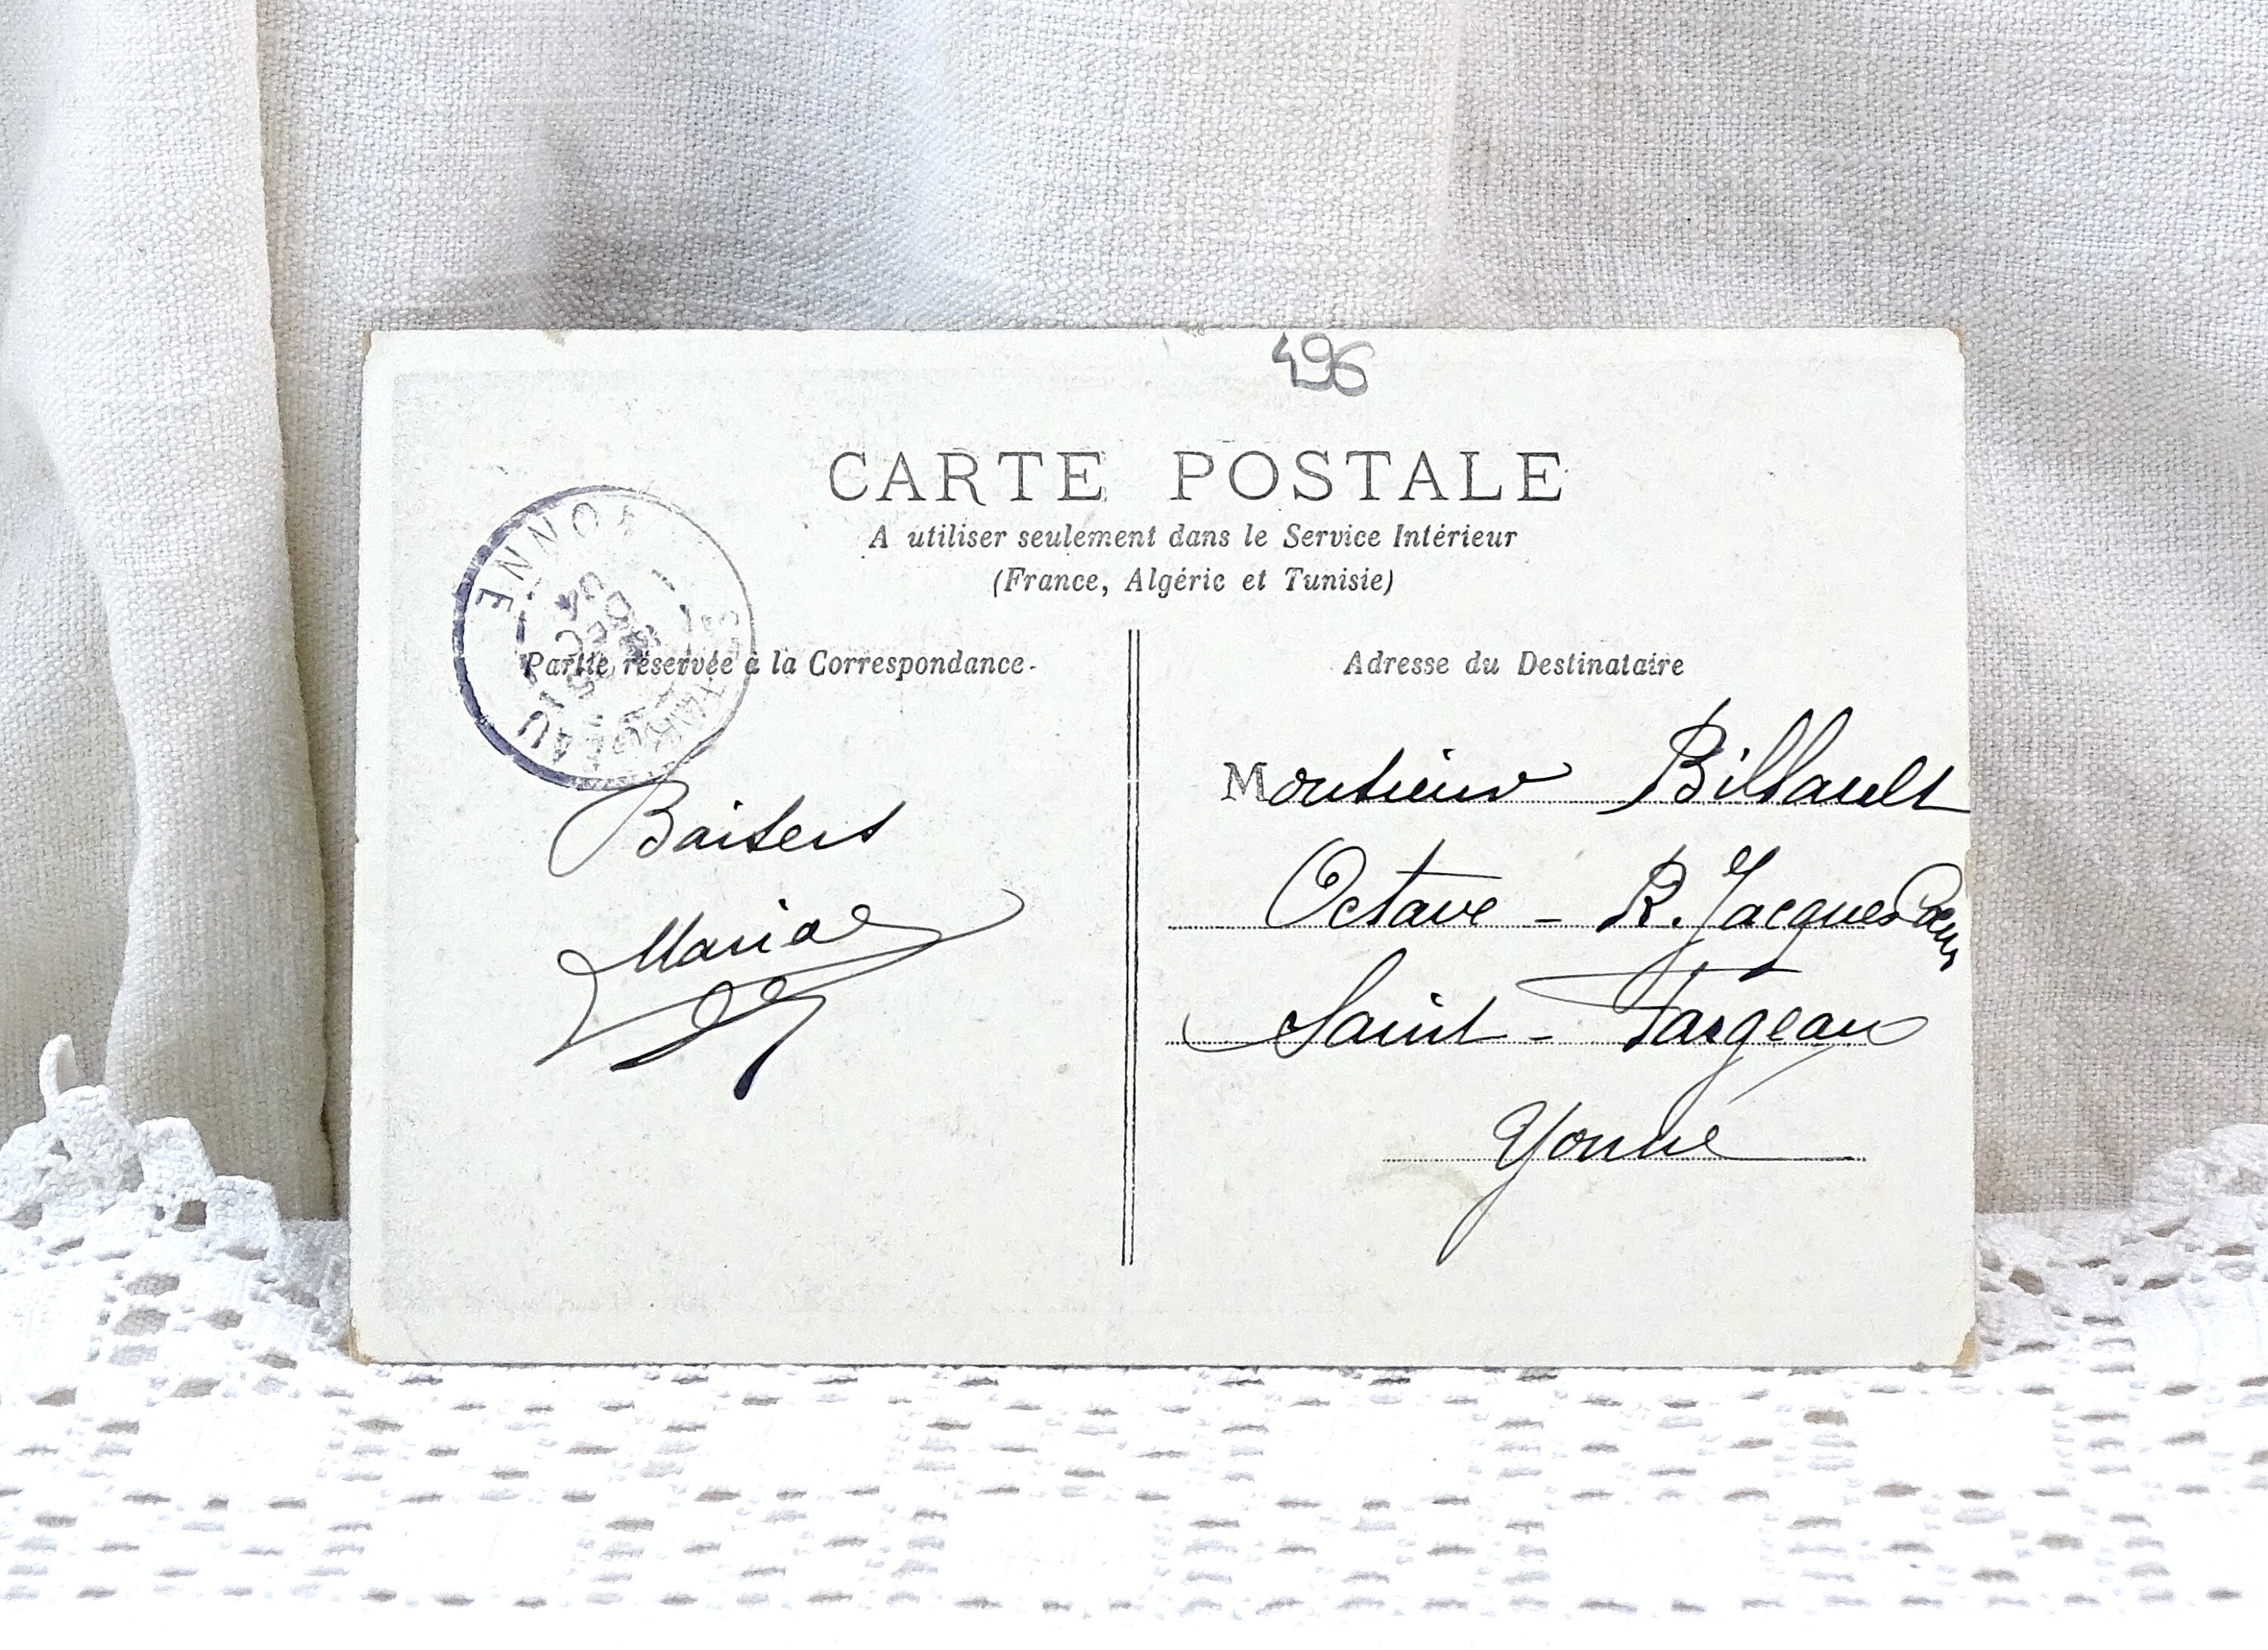 496
CARTE POSTALE
A utiliser seulement dans le Service Intérieur
(France, Algérie et Tunisie)
Partie réservée à la Correspondance
Adresse du Destinataire
YONNE
FARGEAU
Baisers
Maria
Monsieur Billault
Octave - R. Jacques Cœur
Saint-Fargeau
Yonne